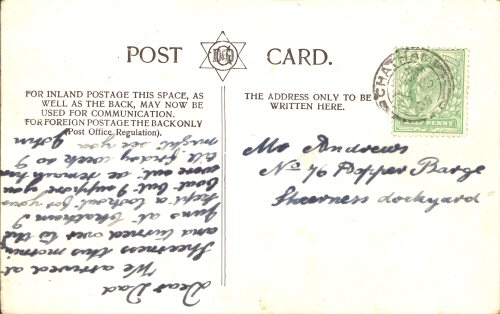 POST CARD.
FOR INLAND POSTAGE THIS SPACE, AS
WELL AS THE BACK, MAY NOW BE
USED FOR COMMUNICATION.
FOR FOREIGN POSTAGE THE BACK ONLY
(Post Office Regulation).
THE ADDRESS ONLY TO BE
WRITTEN HERE.
CHATHAM
PENNY
Mr Andrews
No 76 Hopper Barge
Sheerness dockyard
Dear Dad
We arrived at
Sheerness this morning
and turned over to the
at Chatham I
kept a lookout for your
boat but I suppose you
were out
till friday week so I
might see you
John